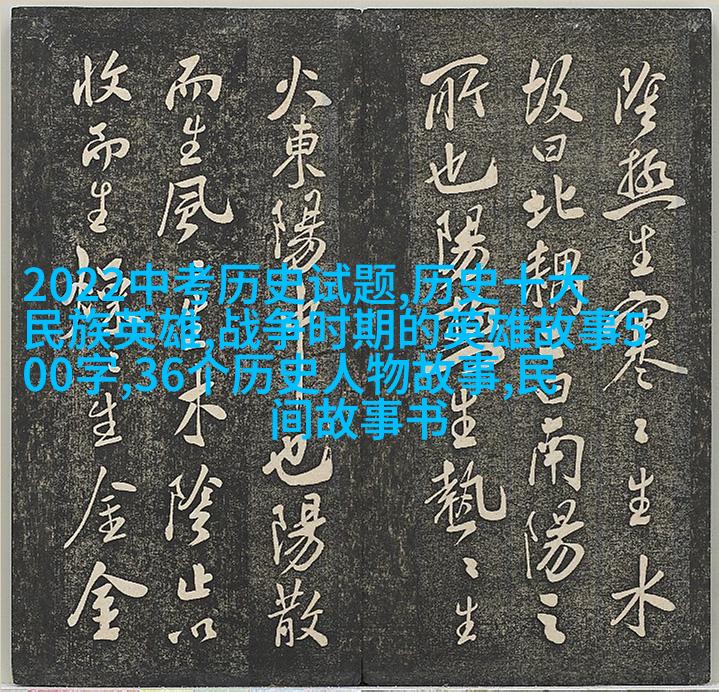 2022中考历史试题,历史十大
民族英雄,战争时期的英雄故事5
00字,36个历史人物故事,民
间故事书
陰極生寒〻生水
故曰北耦南陽之
所也陽生熱〻生
火東陽也陽散
而生風生木陰止以
收而生〻生金金